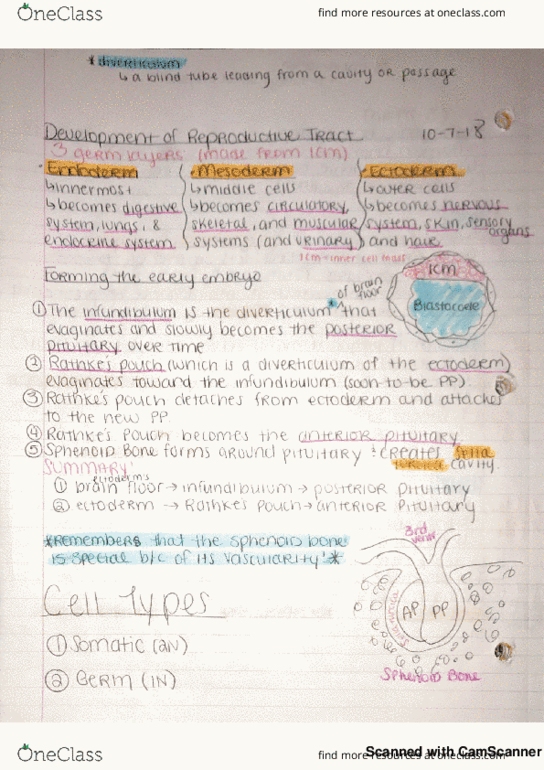 OneClass find more resources at oneclass.com
* diverticulum
↳ a blind tube leading from a cavity or passage
Development of Reproductive Tract 10-7-18
3 germ layers (made from ICM)
Endoderm Mesoderm Ectoderm
↳ innermost ↳ middle cells ↳ outer cells
↳ becomes digestive ↳ becomes circulatory, ↳ becomes nervous
system, lungs, & skeletal, and muscular system, skin, sensory organs
endocrine system systems (and urinary) and hair
ICM = inner cell mass
Forming the early embryo
ICM
Blastocoele
of brain floor
① The infundibulum is the diverticulum* that
evaginates and slowly becomes the posterior
pituitary over time
② Rathke's pouch (which is a diverticulum of the ectoderm)
evaginates toward the infundibulum (soon to be PP)
③ Rathke's pouch detaches from ectoderm and attaches
to the new PP.
④ Rathke's Pouch becomes the anterior pituitary.
⑤ Sphenoid Bone forms around pituitary & creates sella
turcica cavity.
SUMMARY:
ectoderms
① brain floor → infundibulum → posterior pituitary
② ectoderm → Rathke's Pouch → anterior Pituitary
*Remember that the sphenoid bone
is special b/c of its vascularity! *
3rd
AP PP
Sphenoid Bone
Cell Types
① Somatic (2N)
② Germ (1N)
OneClass find more resources at oneclass.com
Scanned with CamScanner